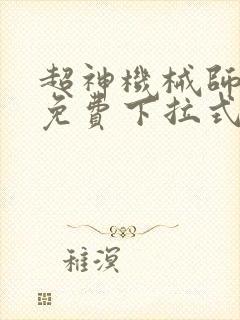 超神機械師
免費下拉式
稚溟